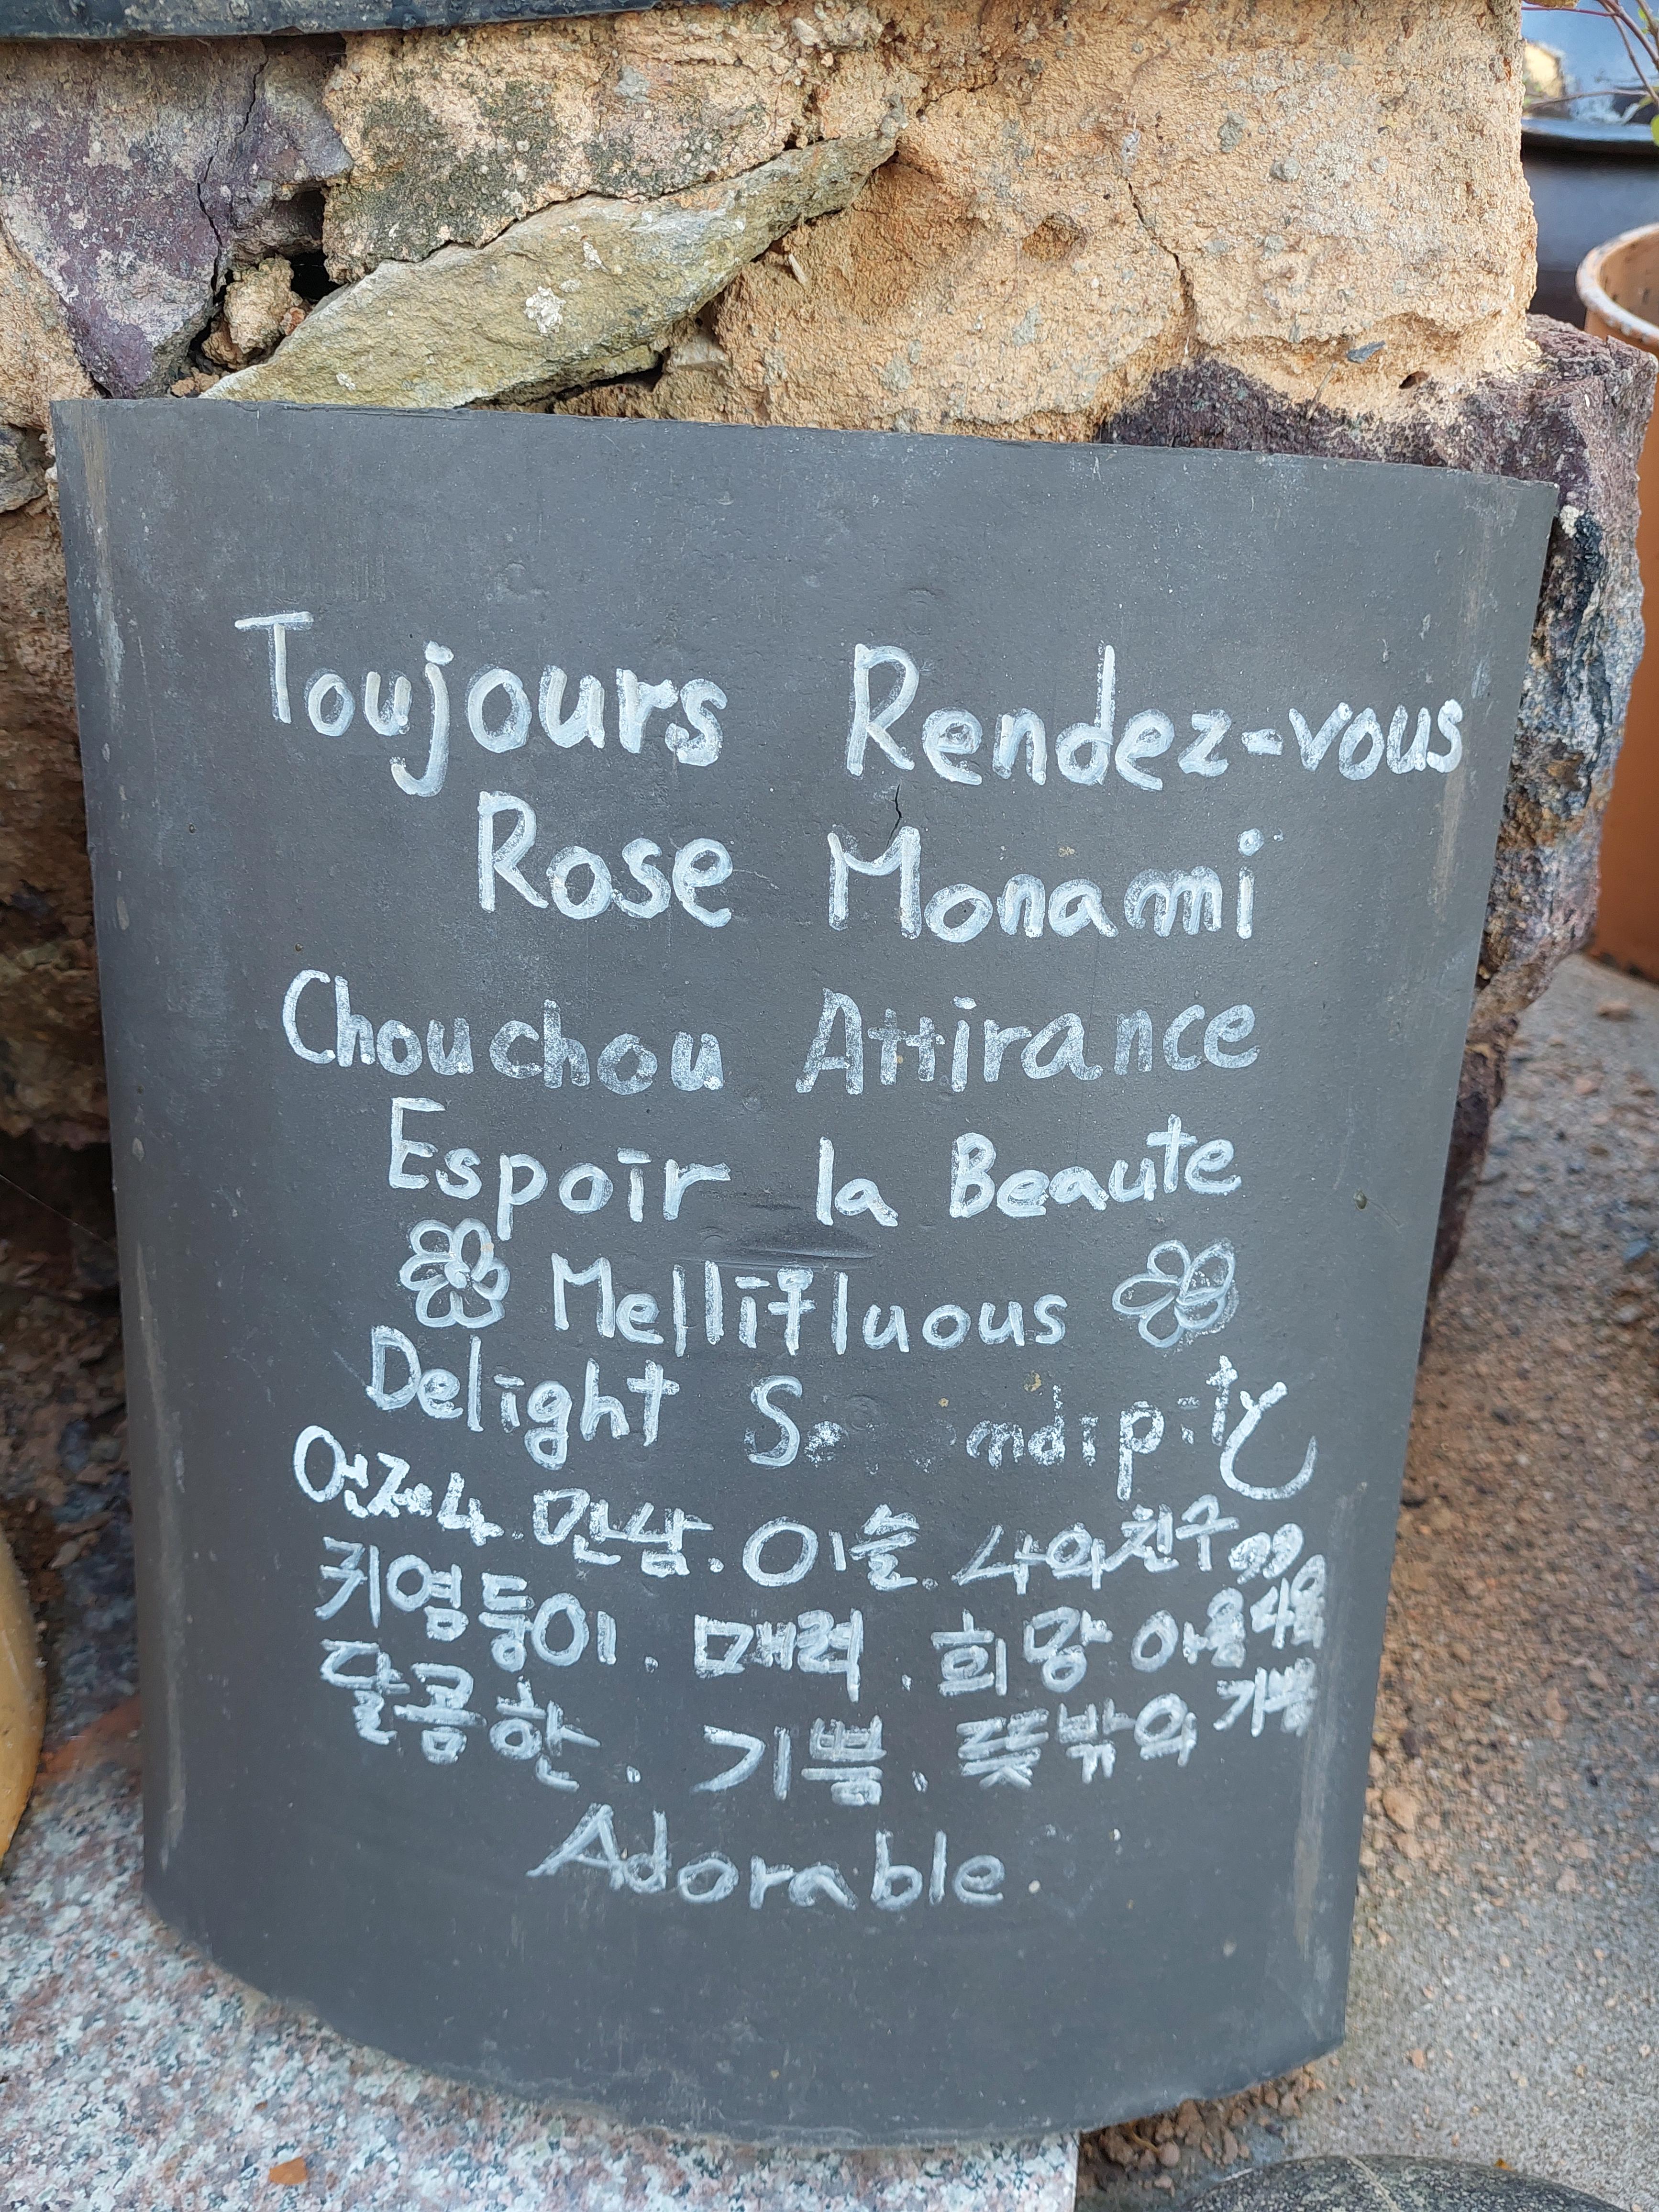 Toujours Rendez-vous
Rose Monami
Chouchou Attirance
Espoir la Beaute
Mellifluous
Delight
언제나. 만남. 이슬. 나의친구
귀염둥이. 매력. 희망 아름다움
달콤한. 기쁨. 뜻밖의 기쁨
Adorable.